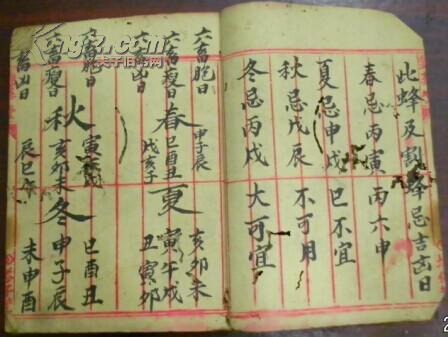 此蜂及割蜂忌吉凶日
春忌丙寅 丙六申
夏忌申戌 巳不宜
秋忌戊辰 不可用
冬忌丙戌 大可宜
六畜胞日 甲子辰 亥卯未
六畜瘦日 春 巳酉丑 夏 寅午戌
六畜凶日 戊亥子 丑寅卯
六畜胞日 寅 巳酉丑
六畜瘦日 秋 亥卯未 冬 申子辰
畜凶日 辰巳午 未申酉